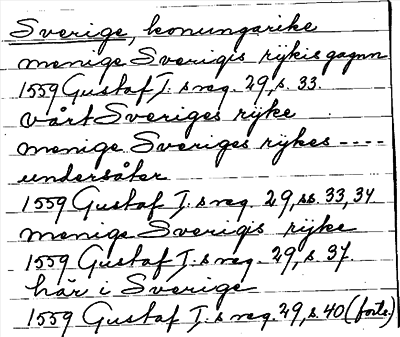 Sverige, konungarike
menige Sverigis rijkis gagnn
1559 Gustaf I:s reg. 29, s. 33.
vårt Sveriges rijke
menige Sveriges rijkes ----
undersåter
1559 Gustaf I:s reg. 29, ss. 33, 34
menige Sverigis rijke
1559 Gustaf I:s reg. 29, s. 37.
här i Sverige
1559 Gustaf I:s reg. 29, s. 40 (forts.)